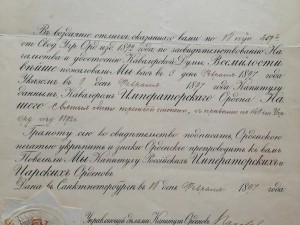 Въ воздаяніе отличія, оказаннаго вами по
отъ Свод. Учр. Орд. изд. 1892 года по засвидѣтельствованію На-
чальства и удостоенію Кавалерской Думы, Всемилости-
вѣйше пожаловали Мы васъ въ 3 день Февраля 1897 года
Указомъ, въ день Февраля 1897 года Капитулу
даннымъ, Кавалеромъ Императорскаго Ордена На-
шего Святыя Анны степени,
изд. 1892
Грамоту сію во свидѣтельство подписать, Орденскою
печатью укрѣпить и знаки Орденскіе препроводить къ вамъ
Повелѣли Мы Капитулу Россійскихъ Императорскихъ и
Царскихъ Орденовъ.
Дана въ Санктпетербургѣ въ день Февраля 1897 года
Управляющій дѣлами Капитула Орденовъ